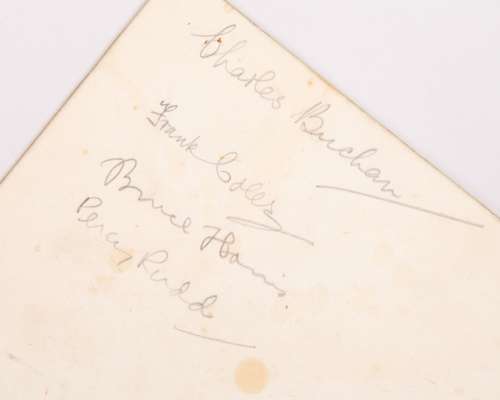 Charles Buchan
Frank Coles
Bruce Harris.
Percy Rudd